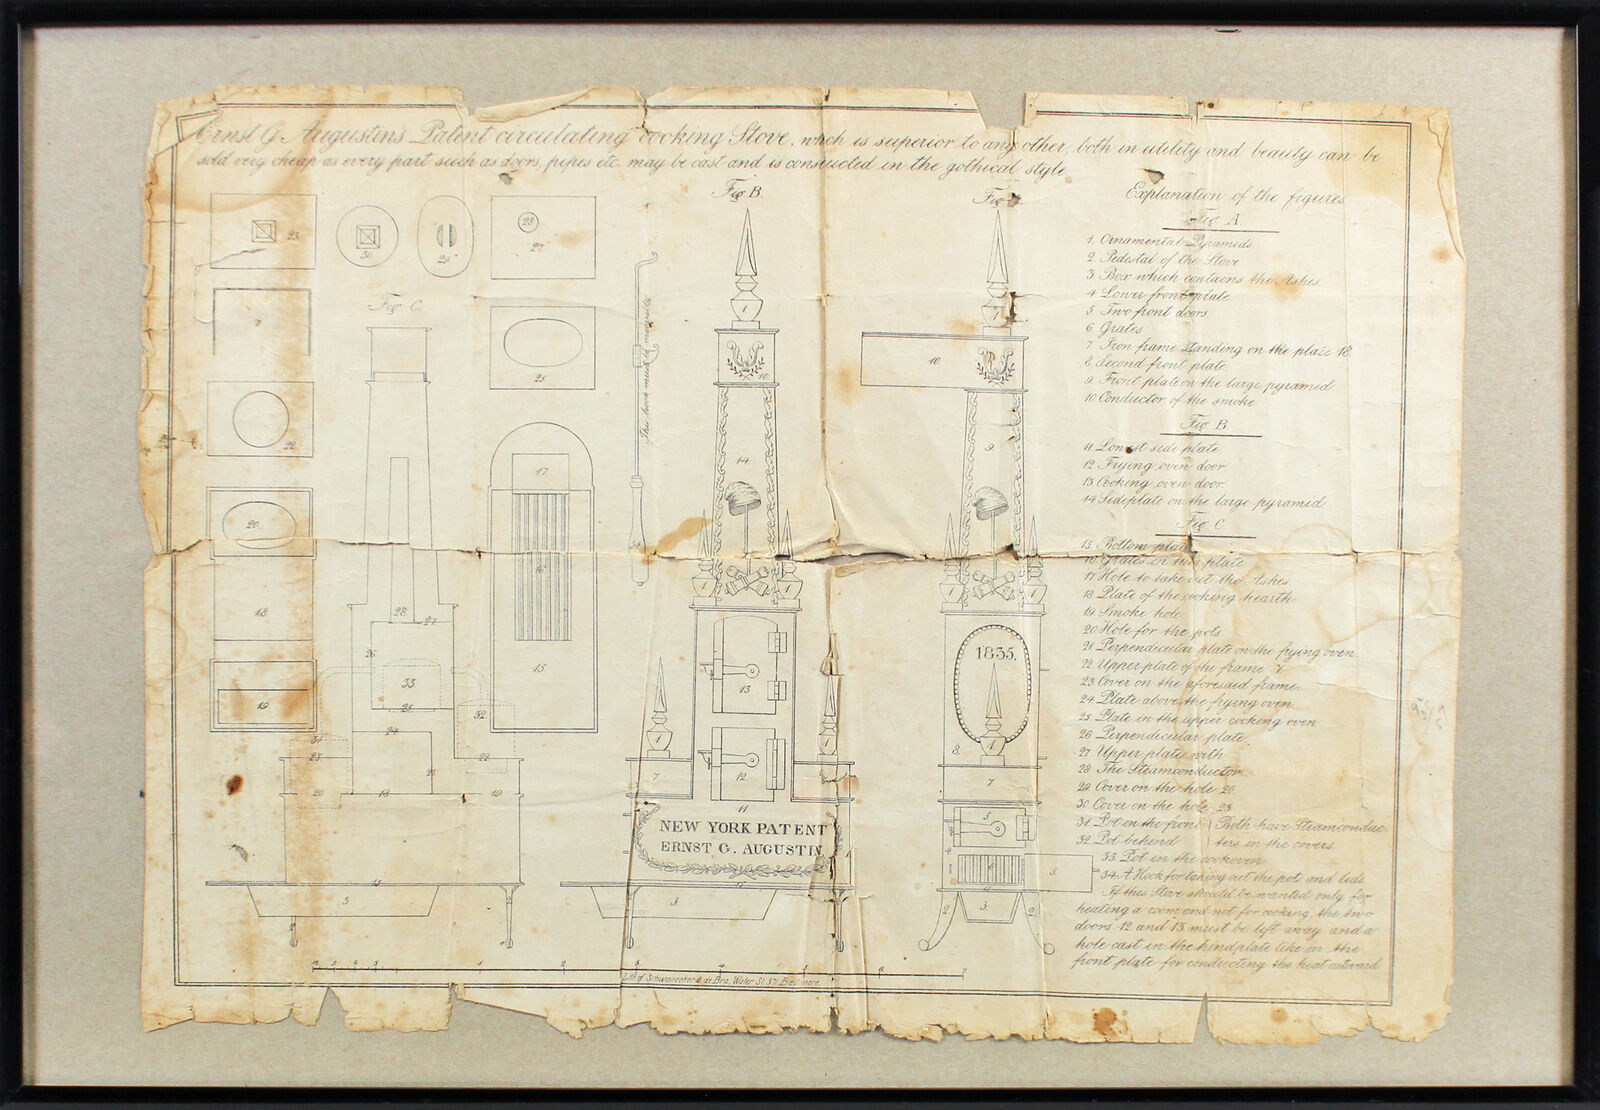 Ernst G. Augustin's Patent circulating cooking Stove, which is superior to any other, both in utility and beauty can be
sold very cheap as every part such as doors, pipes etc. may be cast and is constructed in the gothical style
Fig. B.
Fig.
Fig. C.
23
30
29
28
27
25
22
20
18
19
17
16
15
This hook must be moveable
34
1
10
14
13
12
11
7
NEW YORK PATENT
ERNST G. AUGUSTIN
3
10
9
1835.
8
7
5
6
3
2
2
28
27
26
33
25
32
24
31
23
22
21
20
18
19
15
3
2
Lith. of Schwanecker & de Bra, Water St. 37 Baltimore
Explanation of the figures
Fig. A
1. Ornamental Pyramids.
2. Pedestal of the Stove
3 Box which contains the Ashes.
4 Lower front plate
5 Two front doors
6 Grates
7 Iron frame standing on the plate 18
8 Second front plate
9 Front plate on the large pyramid
10 Conductor of the smoke
Fig. B.
11. Lowest side plate
12 Frying oven door
13 Cooking oven door
14 Sideplate on the large pyramid
Fig. C
15. Bottom plate
16 Grates in this plate
17 Hole to take out the Ashes.
18 Plate of the cooking hearth
19 Smoke hole
20 Hole for the pots
21 Perpendicular plate on the frying oven
22 Upper plate of the frame 7.
23 Cover on the aforesaid frame.
24 Plate above the frying oven
25 Plate in the upper cooking oven
26 Perpendicular plate
27 Upper plate with
28 The Steamconductor
29 Cover on the hole 20
30 Cover on the hole 23
31 Pot on the front } Both have Steamconduc.
32 Pot behind } ters in the covers.
33 Pot in the cookoven
34 A Hook for taking out the pots and lids
If this Stove should be wanted only for
heating a room and not for cooking the two
doors 12 and 13 must be left away and a
hole cast in the hindplate like on the
front plate for conducting the heat outward